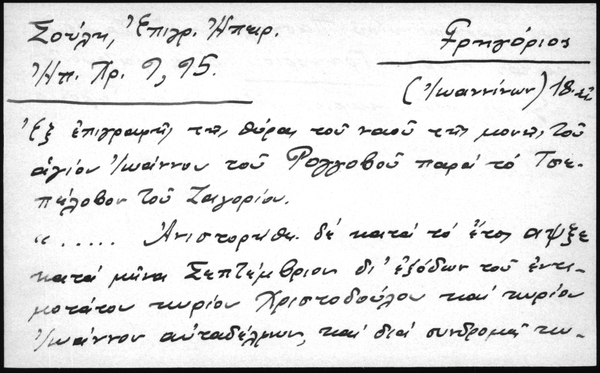 Σούλη, Ἐπιγρ. Ἠπειρ.
Γρηγόριος
Ἠπ. Χρ. 9, 95.
(Ἰωαννίνων) 18.
Ἐξ ἐπιγραφῆς τῆς θύρας τοῦ ναοῦ τῆς μονῆς τοῦ
ἁγίου Ἰωάννου τοῦ Ρογγοβοῦ παρά τό Τσε-
πέλοβον τοῦ Ζαγορίου.
"..... Ἀνιστορήθη δέ κατά τό ἔτος αψξε
κατά μῆνα Σεπτέμβριον δι' ἐξόδων τοῦ ἐντι-
μοτάτου κυρίου Χριστοδούλου καί κυρίου
Ἰωάννου αὐταδέλφων, καί διά συνδρομῆς κυ-